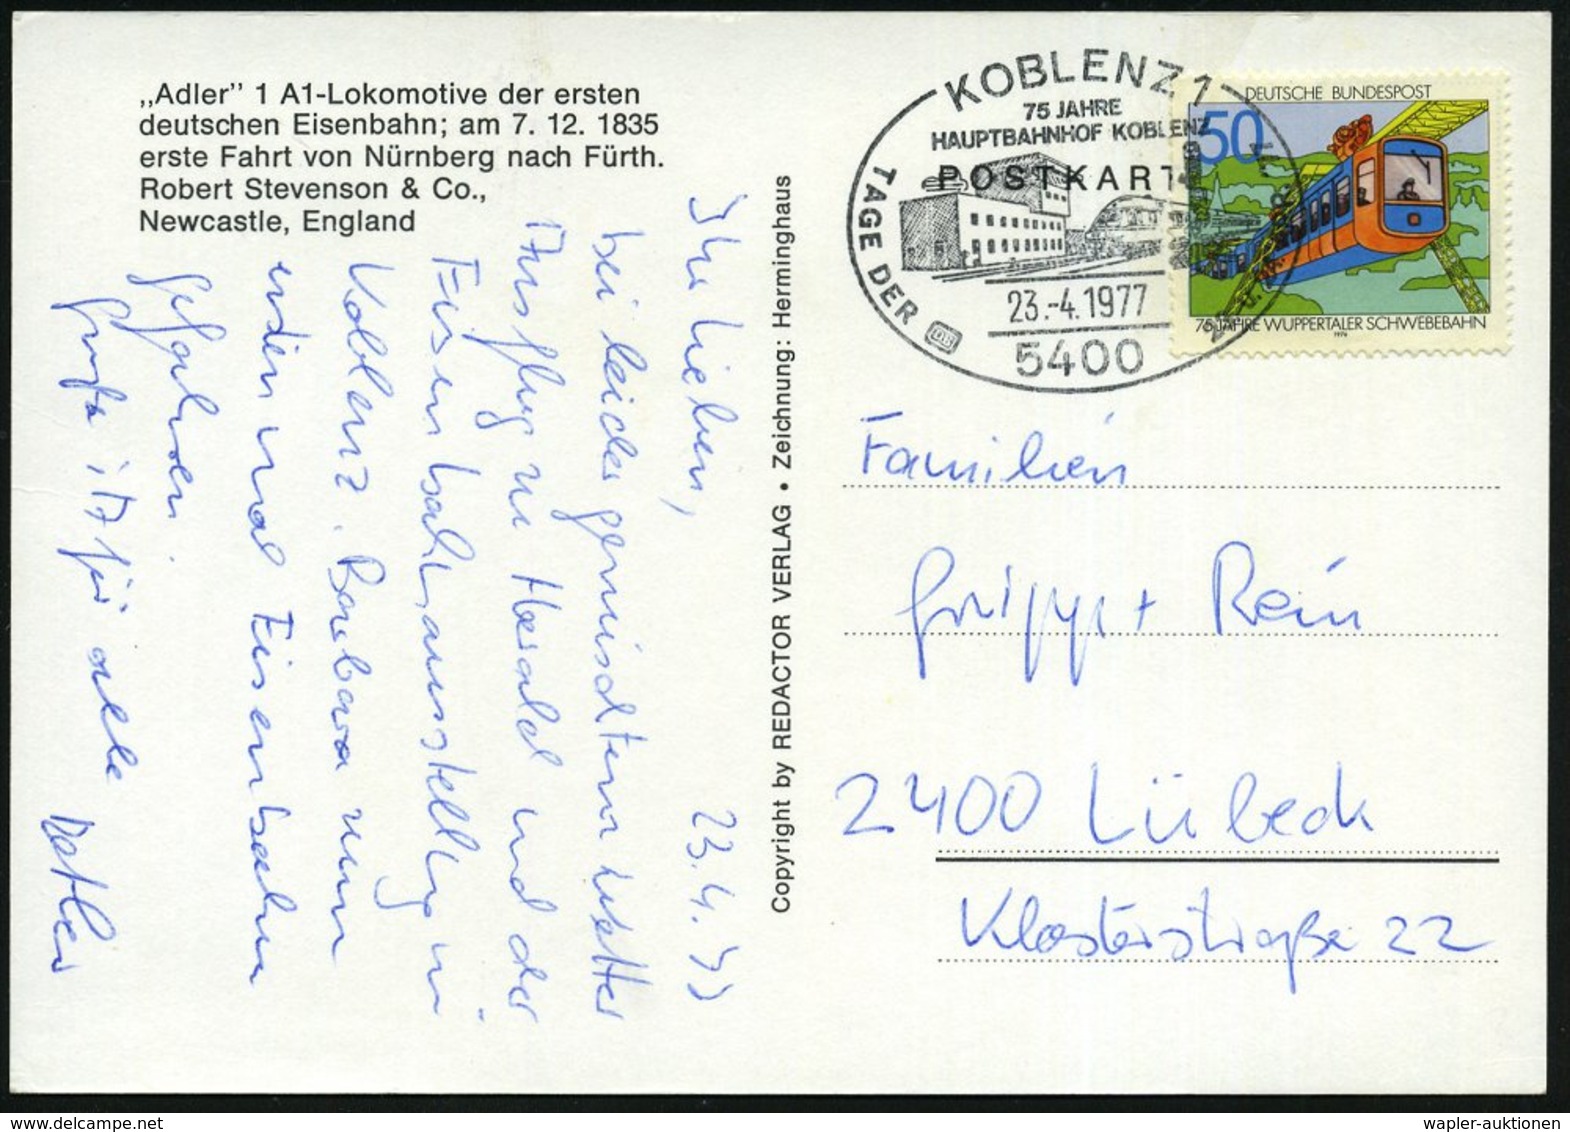 „Adler” 1 A1-Lokomotive der ersten
deutschen Eisenbahn; am 7. 12. 1835
erste Fahrt von Nürnberg nach Fürth.
Robert Stevenson & Co.,
Newcastle, England
Ihr Lieben, 23.4.77
bei leider gemischtem Wetter
Ausflug zu Harald und der
Eisenbahnausstellung in
Koblenz. Barbara nun
endlich mal Eisenbahn
gefahren.
für alle
Copyright by REDACTOR VERLAG • Zeichnung: Herminghaus
KOBLENZ 1
75 JAHRE
HAUPTBAHNHOF KOBLENZ
POSTKARTE
TAGE DER
DB
23.-4.1977
5400
DEUTSCHE BUNDESPOST
50
75 JAHRE WUPPERTALER SCHWEBEBAHN
1976
Familien
+ Rein
2400 Lübeck
Klosterstraße 22
wapler-auktionen